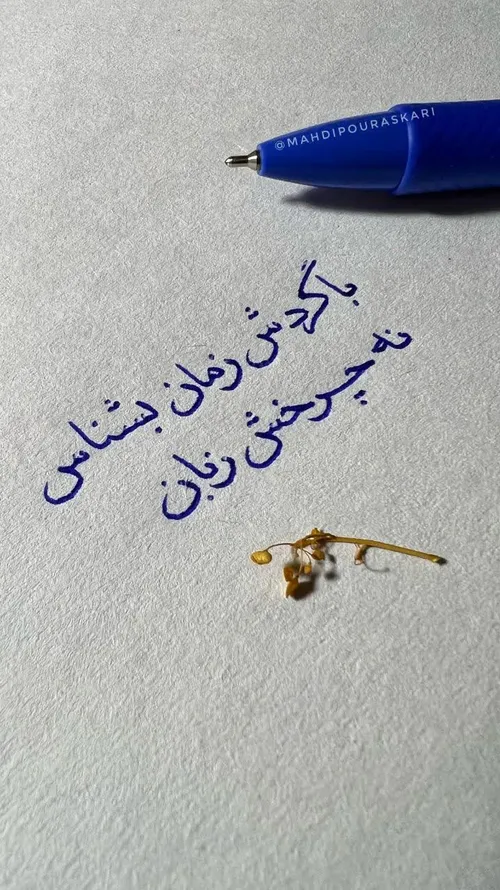 @MAHDIPOURASKARI
با گردش زمان بشناس
نه چرخش زبان